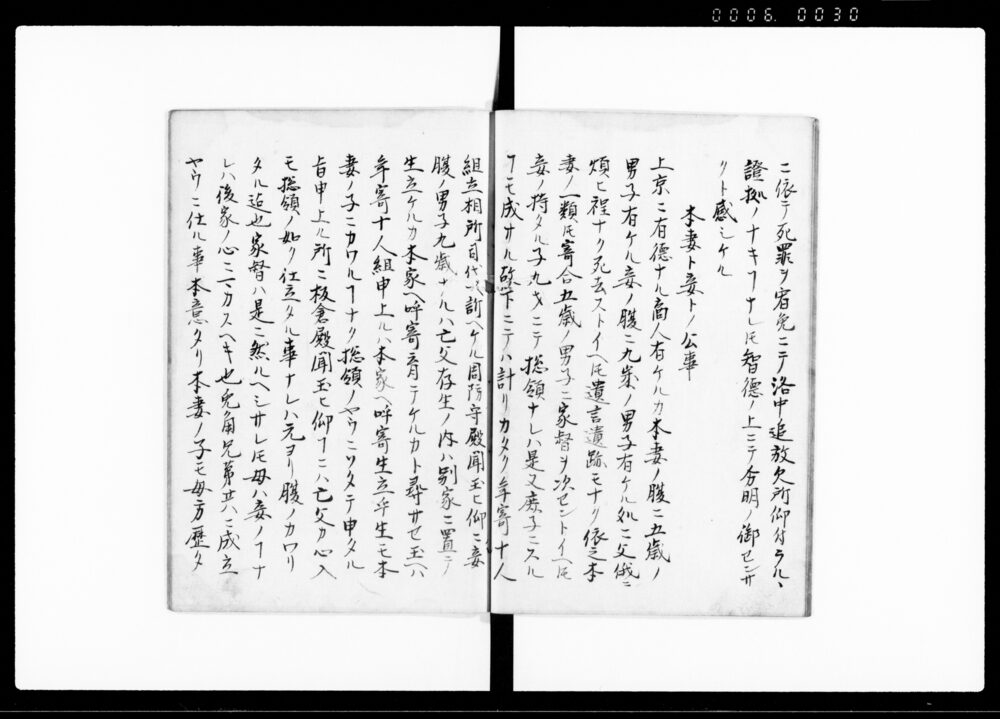 0006.0030
ニ依テ死罪ヲ宥免ニテ洛中追放欠所仰付ラルヽ
證拠ノナキヿナレ𪜈智徳ノ上ニテ分明ノ御センサ
クト感シケル
本妻ト妾トノ公事
上京ニ有徳ナル商人有ケルカ本妻ノ腹ニ五歳ノ
男子有ケル妾ノ腹ニ九歳ノ男子有ケル処ニ父俄ニ
煩ヒ程ナク死去ストイヘ𪜈遺言遺跡モナク依之本
妻ノ一類𪜈寄合五歳ノ男子ニ家督ヲ次セントイヘ𪜈
妾ノ持タル子九才ニテ総領ナレハ是又庶子ニスル
ヿモ成サル故下ニテハ計リカタク年寄十人
組立相所司代ヘ訴ヘケル周防守殿聞玉ヒ仰ニ妾
腹ノ男子九歳ナルハ亡父存生ノ内ハ別家ニ置テ
生立ケルカ本家ヘ呼寄育テケルカト尋サセ玉ヘハ
年寄十人組申上ルハ本家ヘ呼寄生立平生モ本
妻ノ子ニカワルヿナク総領ノヤウニソタテ申タル
旨申上ル所ニ板倉殿聞玉ヒ仰ヿニハ亡父カ心入
モ総領ノ如ク仕立タル事ナレハ元ヨリ腹ノカワリ
タル迄也家督ハ是ニ然ルヘシサレ𪜈母ハ妾ノヿナ
レハ後家ノ心ニマカスヘキ也兎角兄弟共ニ成立
ヤウニ仕ル事本意タリ本妻ノ子モ母方歴タ